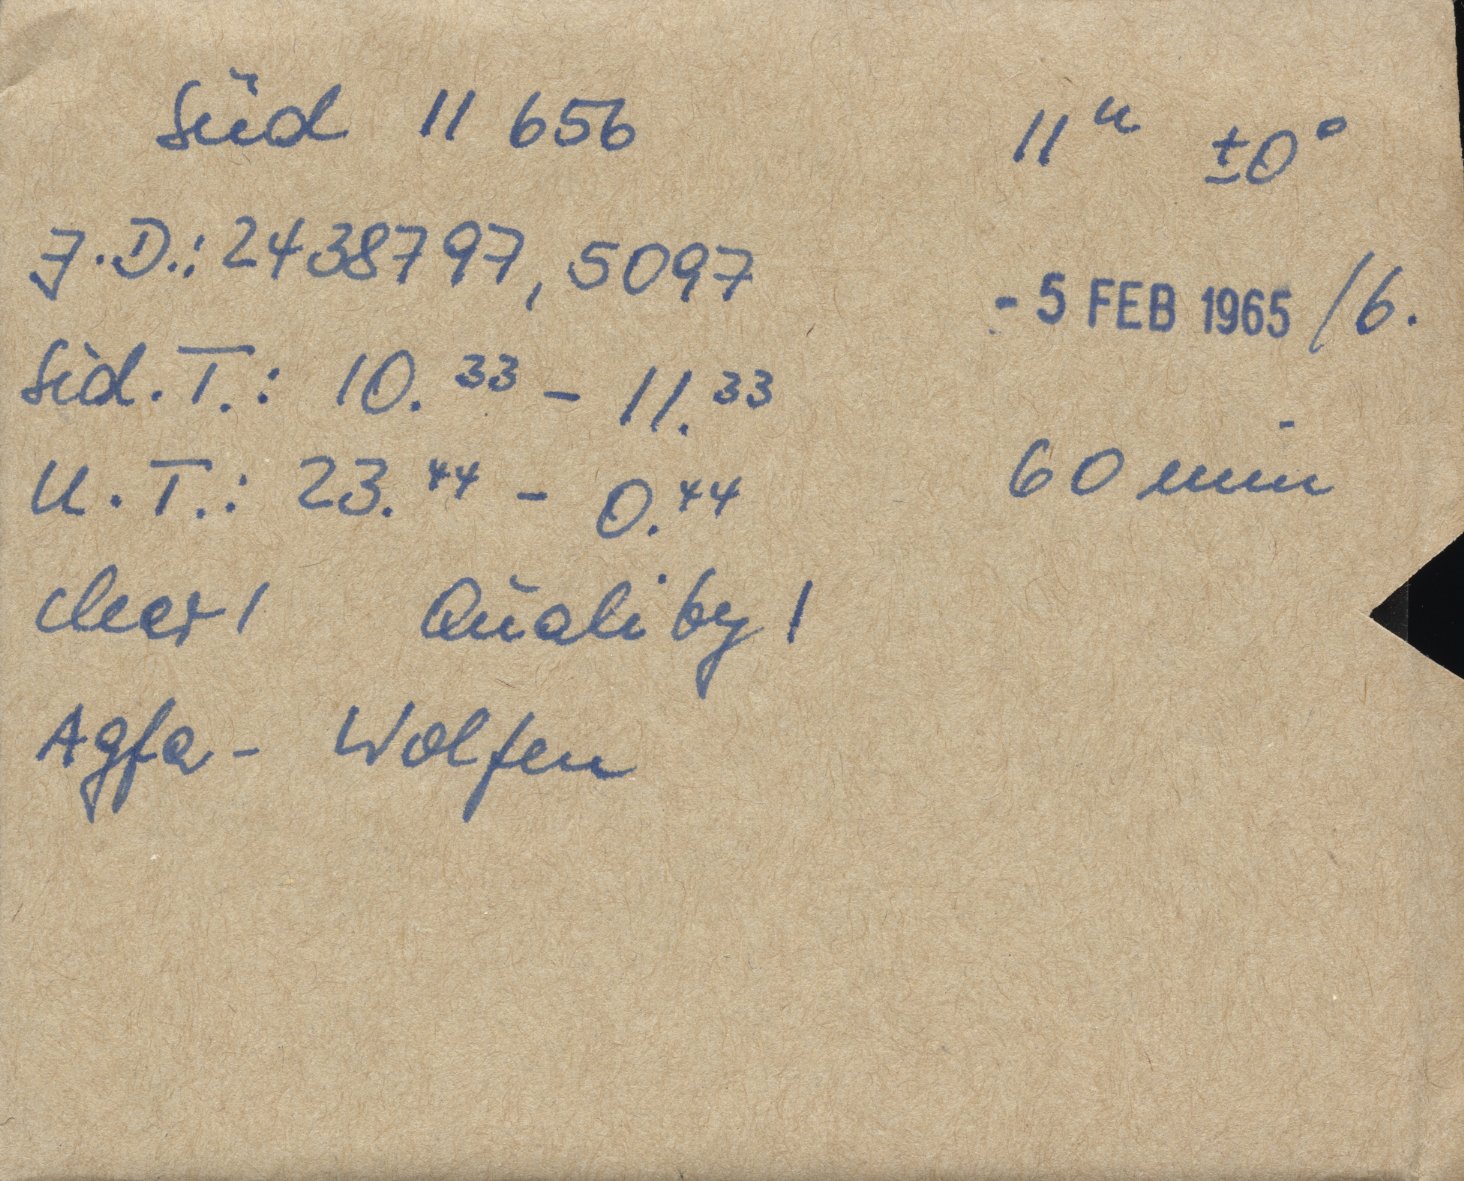 Süd 11 656 11ᵘ ±0°
J.D.: 2438797,5097 - 5 FEB 1965 /6.
Sid. T.: 10.³³ - 11.³³
U. T.: 23.⁴⁴ - 0.⁴⁴ 60 min
clear! Quality!
Agfa - Wolfen